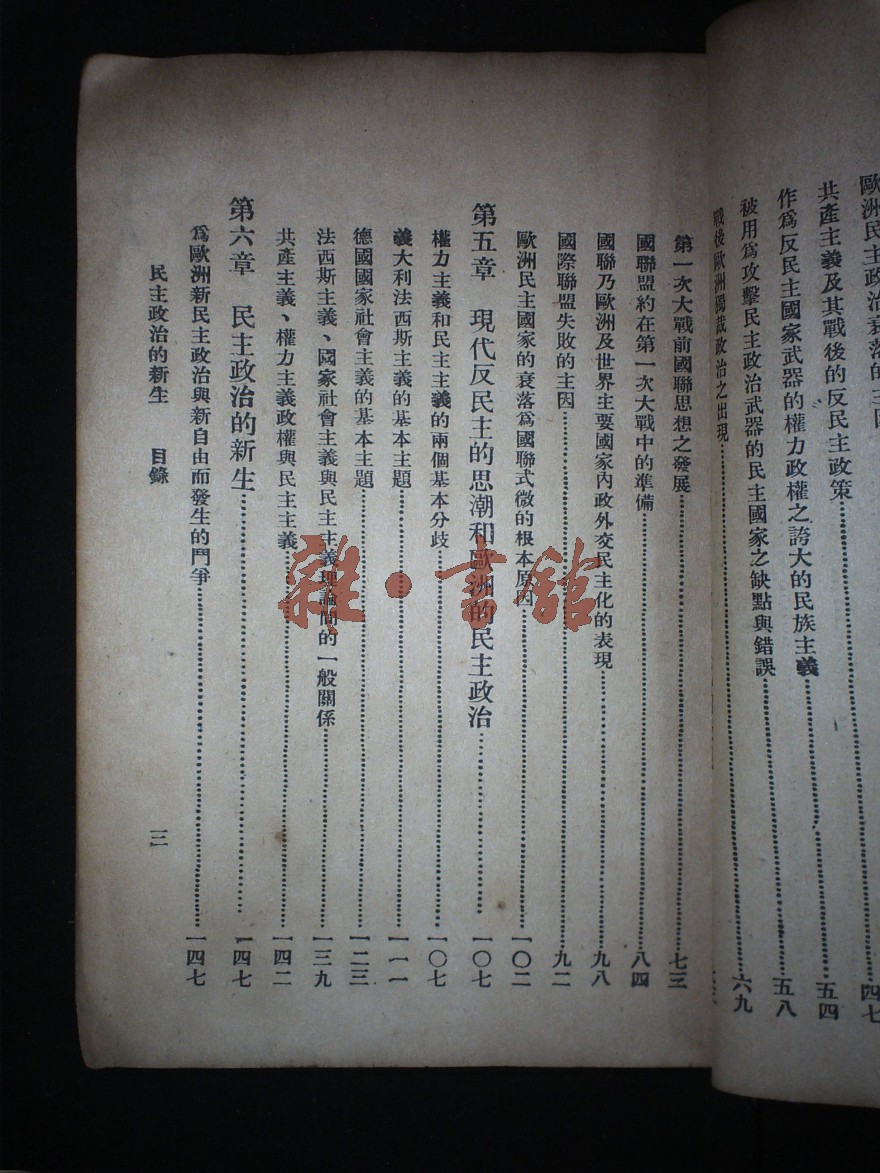 歐洲民主政治衰落的主因……四七
共產主義及其戰後的反民主政策……五四
作爲反民主國家武器的權力政權之誇大的民族主義……五八
被用爲攻擊民主政治武器的民主國家之缺點與錯誤……六九
戰後歐洲獨裁政治之出現……
第一次大戰前國聯思想之發展……七三
國聯盟約在第一次大戰中的準備……八四
國聯乃歐洲及世界主要國家內政外交民主化的表現……九八
國際聯盟失敗的主因……九二
歐洲民主國家的衰落爲國聯式微的根本原因……一〇二
第五章 現代反民主的思潮和歐洲的民主政治……一〇七
權力主義和民主主義的兩個基本分歧……一〇七
義大利法西斯主義的基本主題……一一一
德國國家社會主義的基本主題……一二三
法西斯主義、國家社會主義與民主主義理論間的一般關係……一三九
共產主義、權力主義政權與民主主義……一四二
第六章 民主政治的新生……一四七
爲歐洲新民主政治與新自由而發生的鬥爭……一四七
民主政治的新生 目錄
三
雜·書館